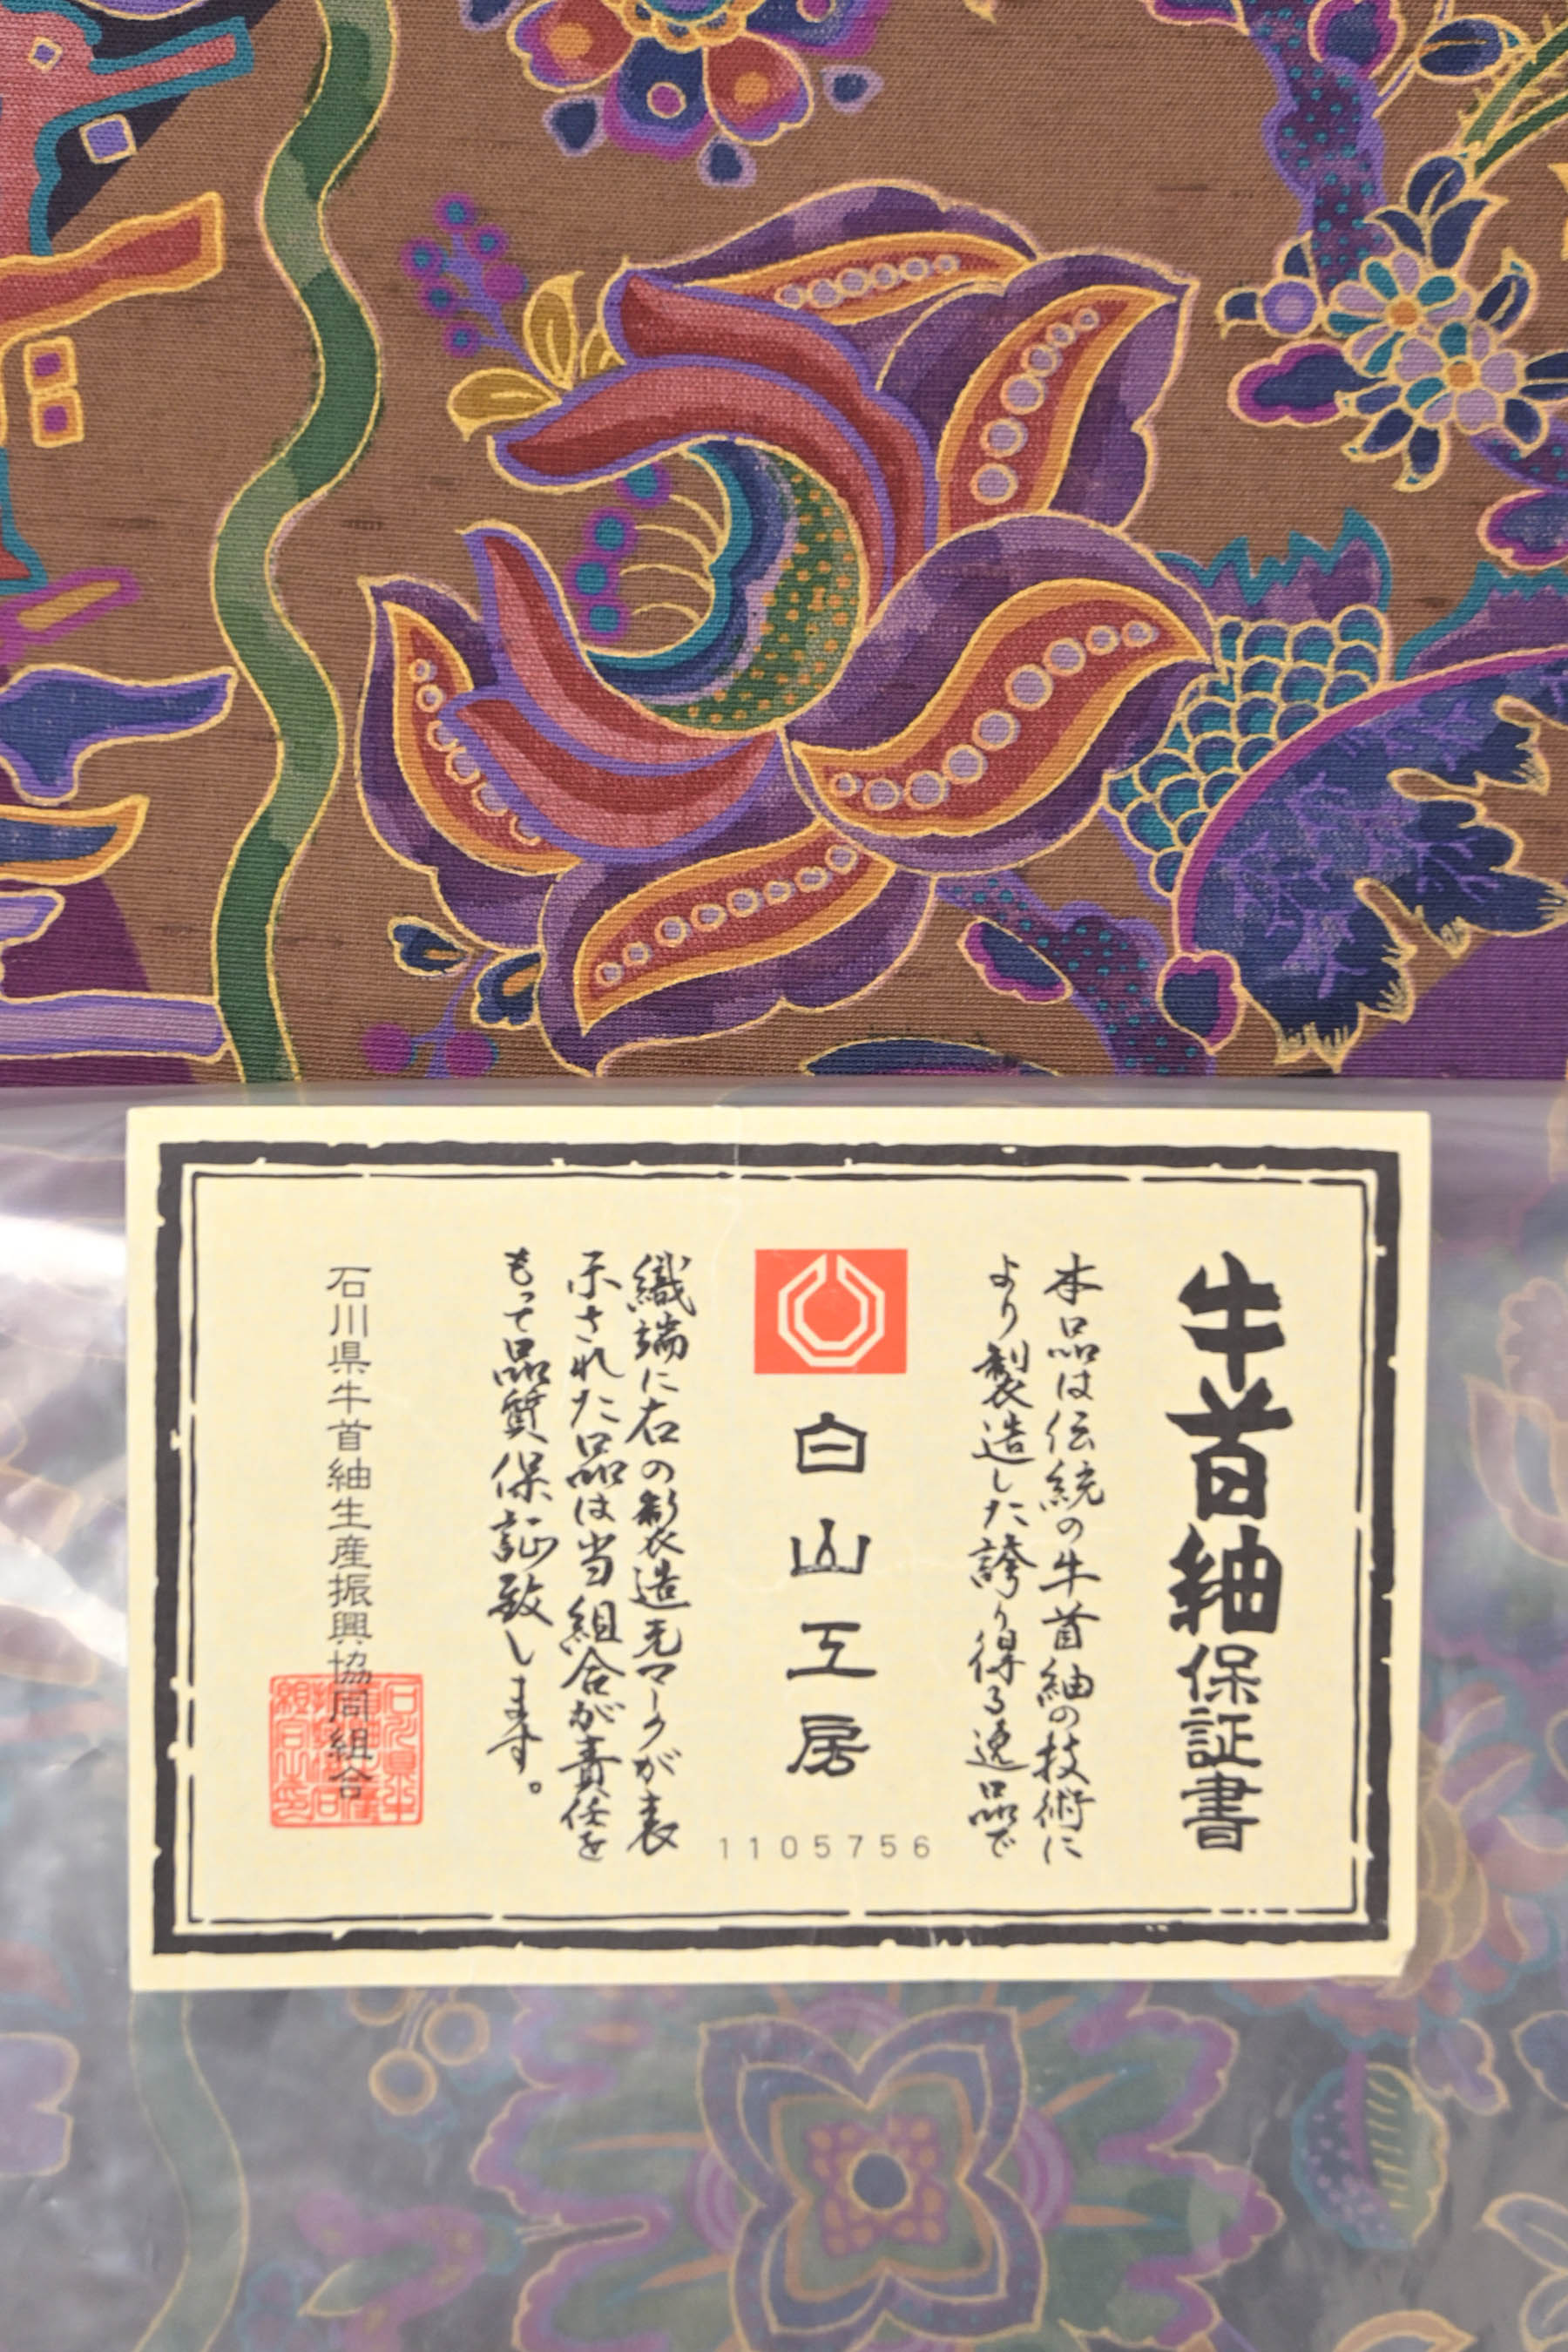 牛首紬保証書
本品は伝統の牛首紬の技術に
より製造した誇り得る逸品で
白山工房
1105756
織端に右の製造元マークが表
示された品は当組合が責任を
もって品質保証致します。
石川県牛首紬生産振興協同組合